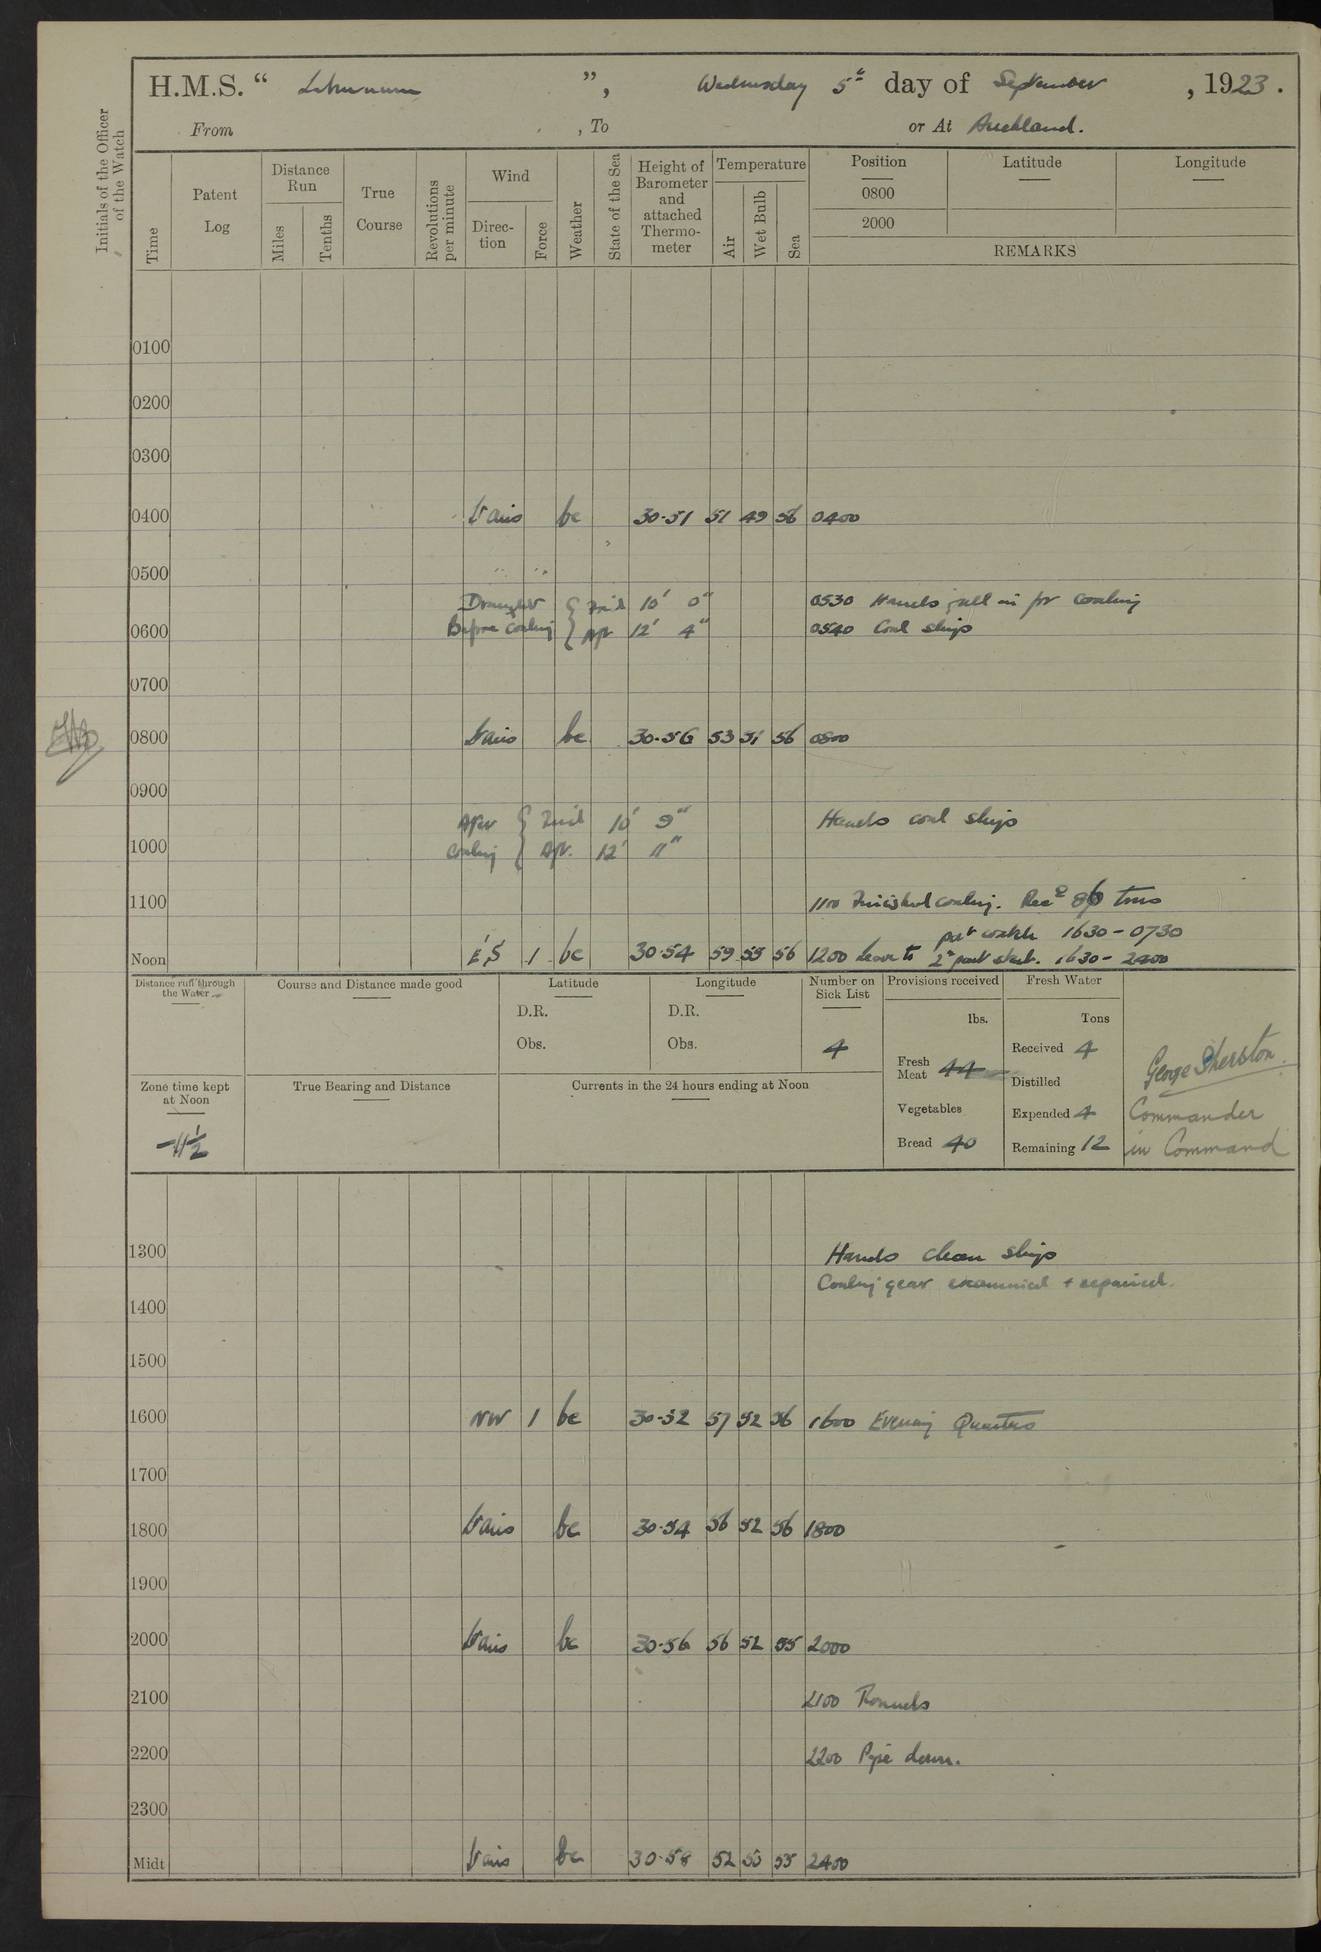 H.M.S. “ Laburnum ”, Wednesday 5th day of September, 1923.
From , To or At Auckland.
Initials of the Officer of the Watch
Time
Patent Log
Distance Run
Miles
Tenths
True Course
Revolutions per minute
Wind
Direc-tion
Force
Weather
State of the Sea
Height of Barometer and attached Thermo-meter
Temperature
Air
Wet Bulb
Sea
Position Latitude Longitude
0800
2000
REMARKS
0100
0200
0300
0400 Vairs bc 30·51 51 49 56 0400
0500
Draught { Fwd 10' 0" 0530 Hands fall in for coaling
0600 Before Coaling { Aft 12' 4" 0540 Coal ship
0700
0800 Vairs bc 30·56 53 51 56 0800
0900
After { Fwd 10' 9" Hands coal ship
1000 Coaling { Aft. 12' 11"
1100 1100 Finished coaling. Recd tons
part watch 1630 - 0730
Noon 1 bc 30·54 59 55 56 1200 Leave to 2nd part 1630 - 2400
Distance run through the Water
Course and Distance made good
Latitude
D.R.
Obs.
Longitude
D.R.
Obs.
Number on Sick List
4
Provisions received
lbs.
Fresh Meat 44
Vegetables
Bread 40
Fresh Water
Tons
Received 4
Distilled
Expended 4
Remaining 12
George Sherston
Commander
in Command
Zone time kept at Noon
-11½
True Bearing and Distance
Currents in the 24 hours ending at Noon
1300 Hands clean ship
Coaling gear examined + repaired.
1400
1500
1600 NW 1 bc 30·52 57 52 56 1600 Evening Quarters
1700
1800 Vairs bc 30·54 56 52 56 1800
1900
2000 Vairs bc 30·56 56 52 55 2000
2100 2100 Rounds
2200 2200 Pipe down.
2300
Midt Vairs bc 30·58 52 50 55 2400